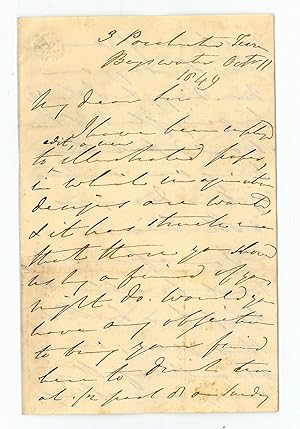 3 Porchester Terr
Bayswater Octr 11
1849
My dear Sir
I have been asked
to edit a new
illustrated paper,
in which imaginative
designs are wanted,
& it has struck me
that those you showed
us by a friend of yours
might do. Would you
have any objection
to bring your friend
here to drink tea
at ½ past 8 on Sunday